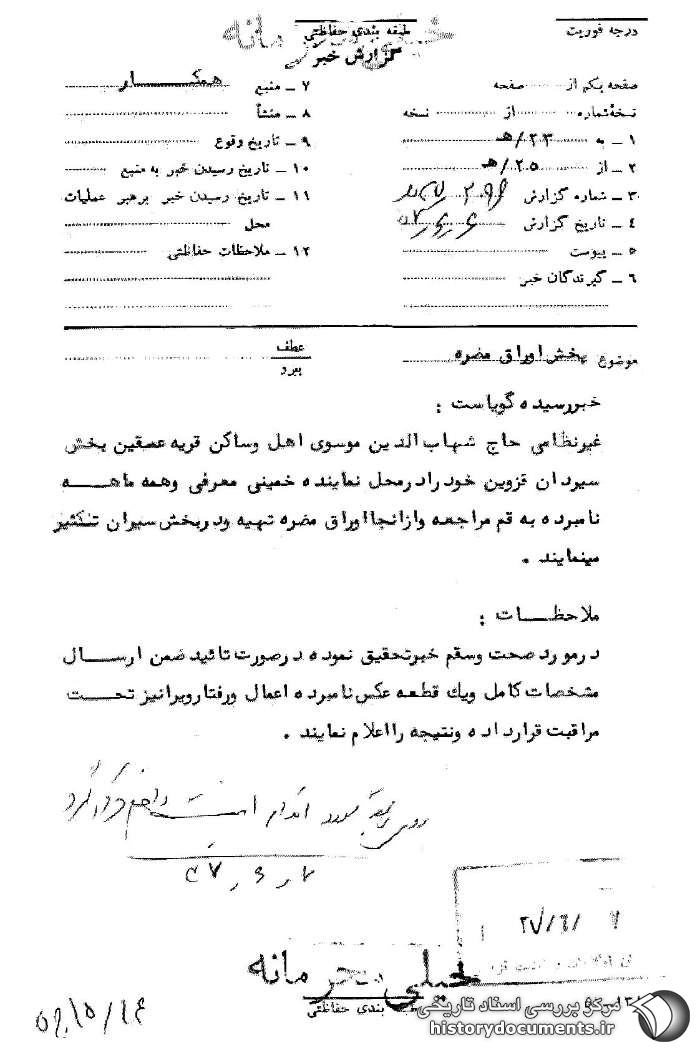 درجه فوریت
طبقه بندی حفاظتی
خیلی محرمانه
گزارش خبر
صفحه یکم از صفحه
نسخهٔ شماره از نسخه
۱ ـ به ۲۳/هـ
۲ ـ از ۲۵/هـ
۳ ـ شماره گزارش
۴ ـ تاریخ گزارش
۵ ـ پیوست
۶ ـ گیرندگان خبر
۷ ـ منبع همکار
۸ ـ منشأ
۹ ـ تاریخ وقوع
۱۰ ـ تاریخ رسیدن خبر به منبع
۱۱ ـ تاریخ رسیدن خبر برهبر عملیات
محل
۱۲ ـ ملاحظات حفاظتی
موضوع پخش اوراق مضره
عطف
پیرو
خبررسیده گویاست :
غیرنظامی حاج شهاب الدین موسوی اهل وساکن قریه عصقین بخش
سیردان قزوین خود رادرمحل نماینده خمینی معرفی وهمه ماهه
نامبرده به قم مراجعه وازانجااوراق مضره تهیه ودربخش سیران تکثیر
مینمایند .
ملاحظات :
درمورد صحت وسقم خبرتحقیق نموده درصورت تائید ضمن ارسال
مشخصات کامل ویك قطعه عکس نامبرده اعمال ورفتارویرانیز تحت
مراقبت قرارداده ونتیجه رااعلام نمایند .
خیلی محرمانه
بندی حفاظتی
مرکز بررسی اسناد تاریخی
historydocuments.ir